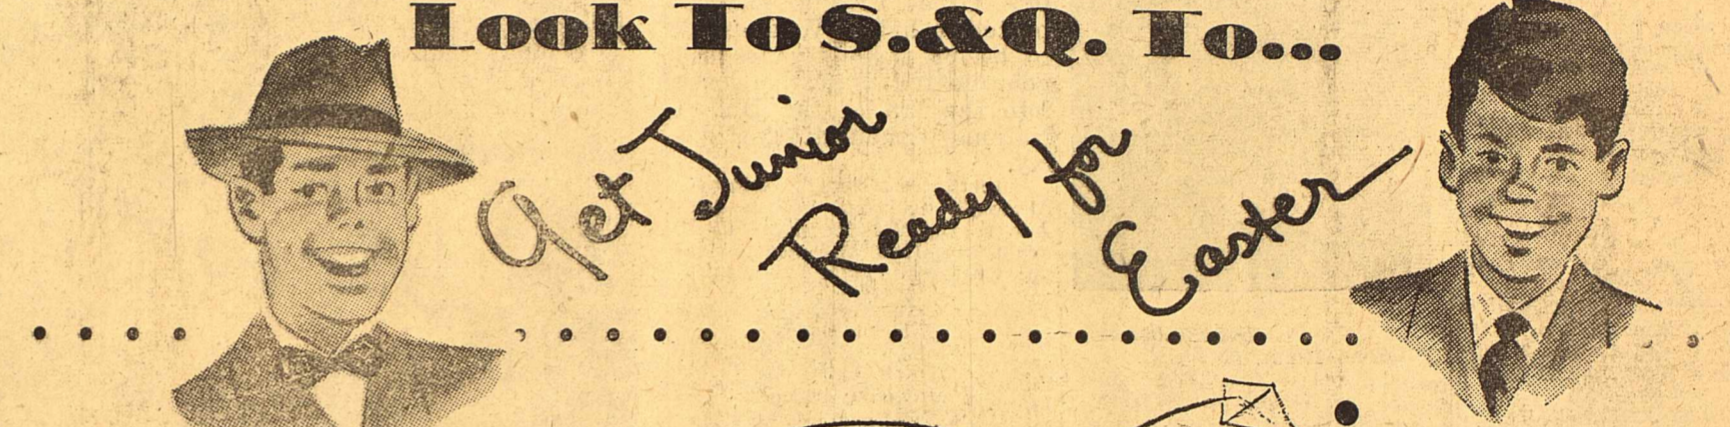 Look To S.&Q. To...
Get Junior
Ready for
Easter